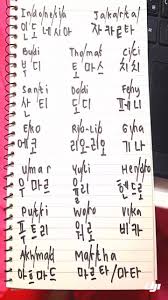 Indonesia Jakarta
인도네시아 자카르타
Budi Thomas Cici
부디 토마스 치치
Santi Dodi Feny
산티 도디 페니
Eko Rio-Lio Gina
에코 리오-리오 기나
Umar Yuli Hendro
우마르 율리 헨드로
Putri Woro Vika
푸트리 워로 비카
Akhmad Martha
아크마드 마르타/마타